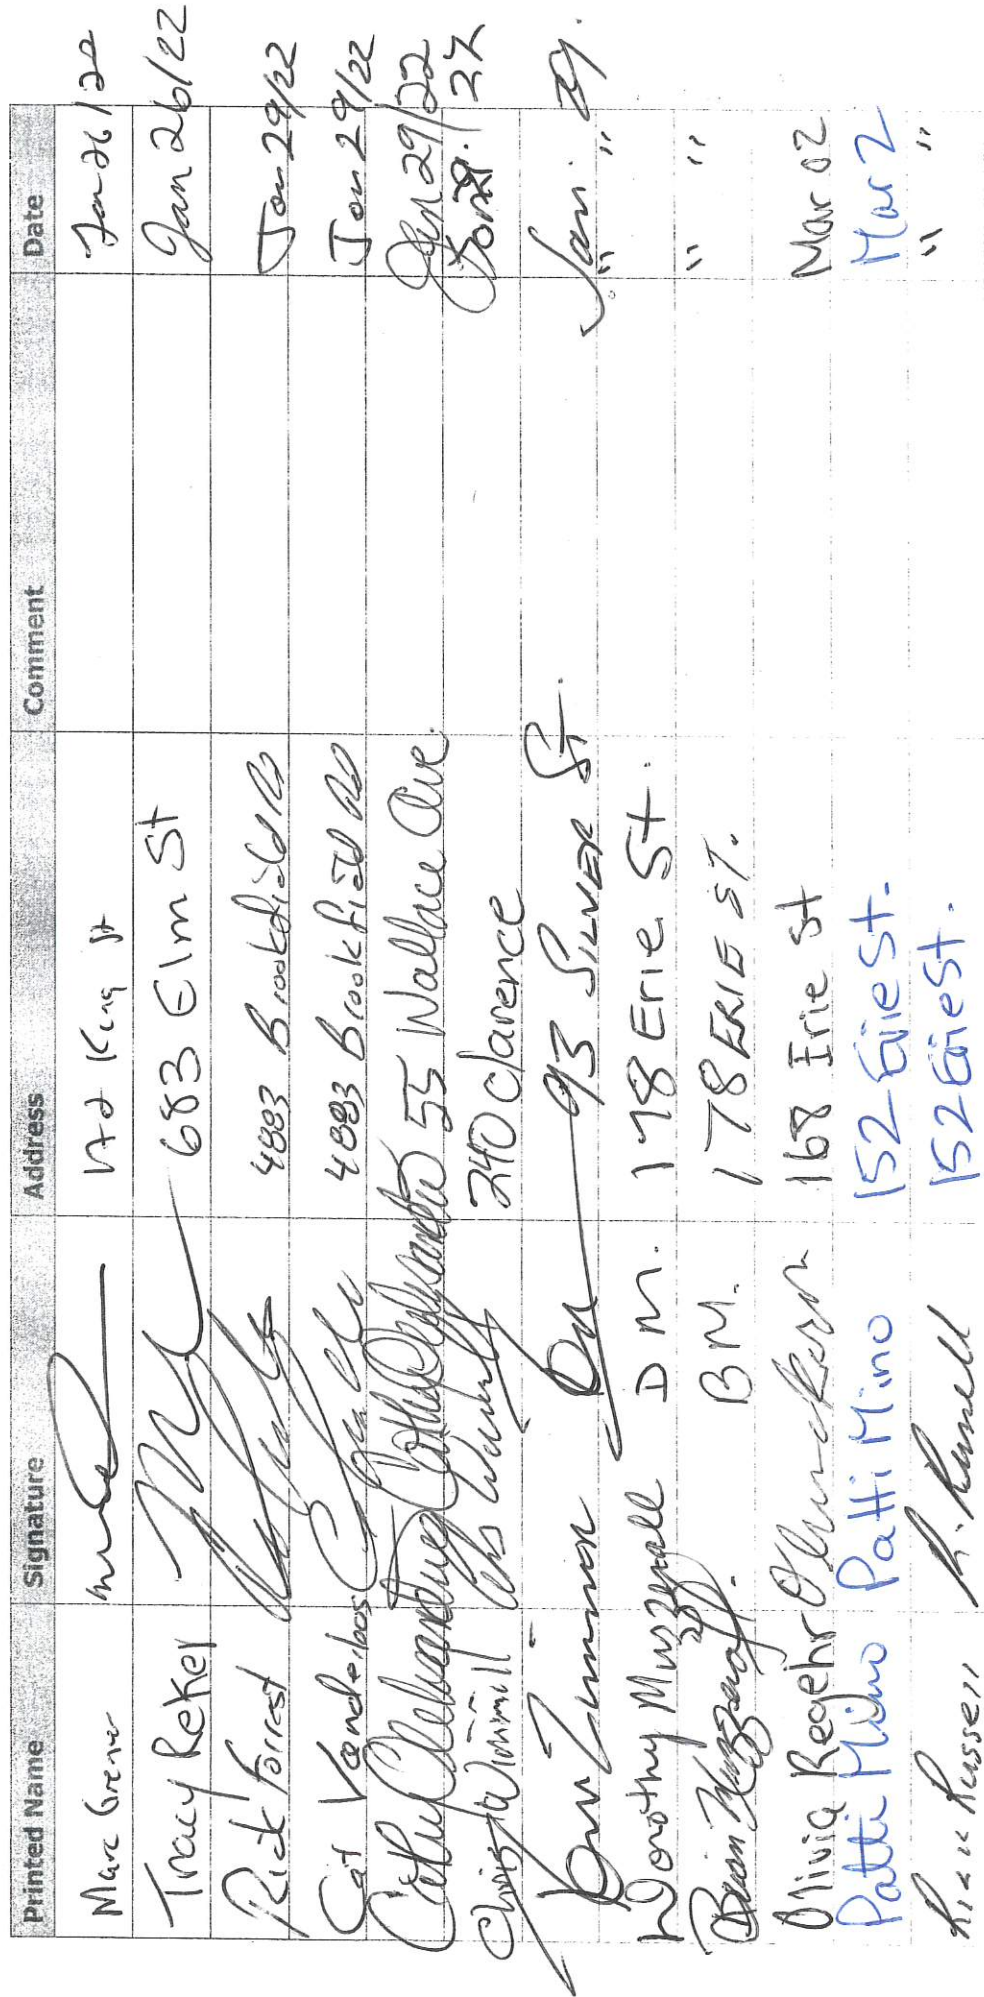 Printed Name Signature Address Comment Date
Marc Grenier 172 King St Jan 26/22
Tracy Reker 683 Elm St Jan 26/22
Rick Forrest 4883 Brookfield Rd Jan 29/22
Cat Vanderbos 4883 Brookfield Rd Jan 29/22
Cathy 55 Wallace Ave. Jan 29/22
Chris Windmill 240 Clarence Jan 29. / 22
Zimmerman 93 Silver St. Jan. 29.
Dorothy Muzzall D M. 178 Erie St. " "
Brian Muzzall B M. 178 ERIE ST. " "
Olivia Regehr 168 Irie St Mar 02
Patti Mino Patti Mino 152 Erie St. Mar 2
Russell R. Russell 152 Erie St. " "